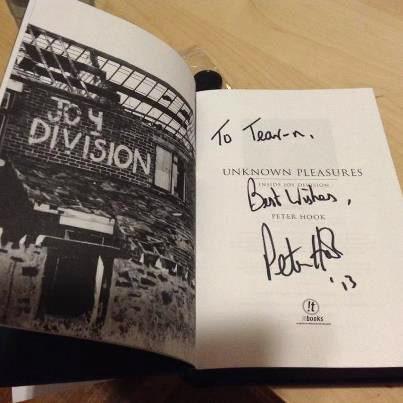 JOY
DIVISION
To Tear-n,
UNKNOWN PLEASURES
INSIDE JOY DIVISION
Best Wishes,
PETER HOOK
Peter Hook
'13
it
itbooks